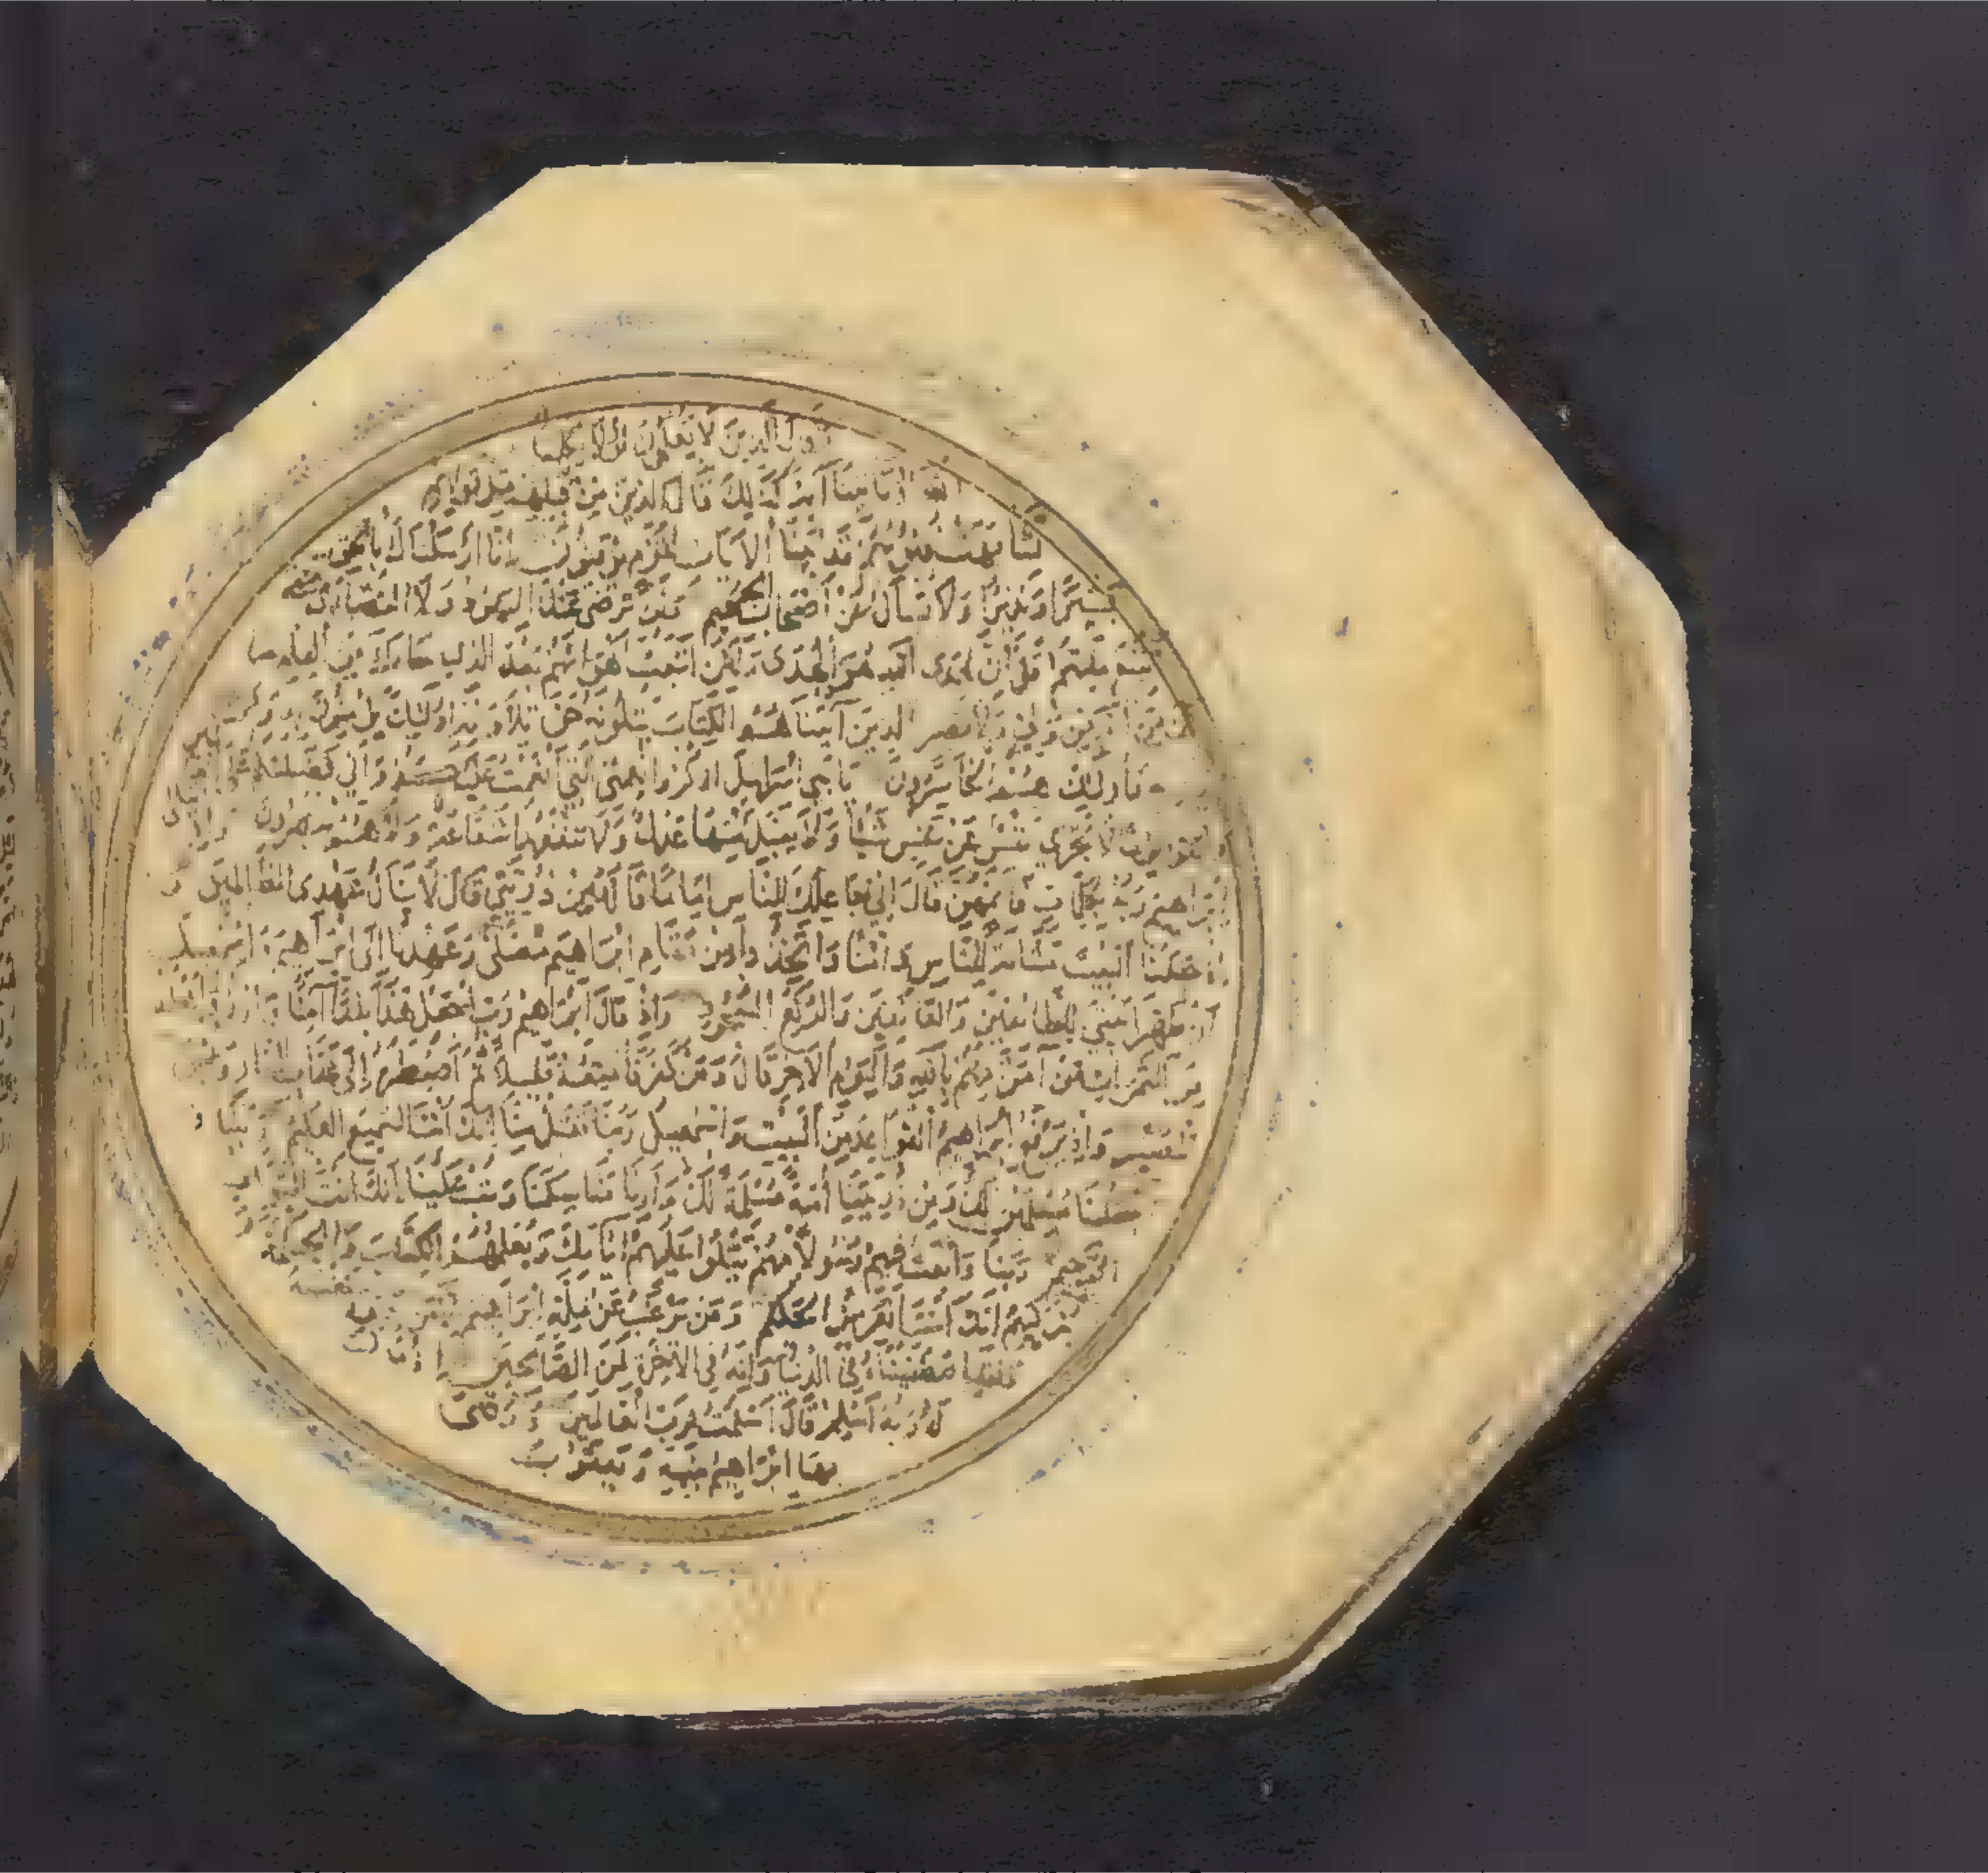 وقال الذين لا يعلمون لولا يكلمنا
الله أو تأتينا آية كذلك قال الذين من قبلهم مثل قولهم
تشابهت قلوبهم قد بينا الآيات لقوم يوقنون إنا أرسلناك بالحق
بشيرا ونذيرا ولا تسأل عن أصحاب الجحيم ولن ترضى عنك اليهود ولا النصارى حتى
تتبع ملتهم قل إن هدى الله هو الهدى ولئن اتبعت أهواءهم بعد الذي جاءك من العلم ما
لك من الله من ولي ولا نصير الذين آتيناهم الكتاب يتلونه حق تلاوته أولئك يؤمنون به ومن يكفر
به فأولئك هم الخاسرون يا بني إسرائيل اذكروا نعمتي التي أنعمت عليكم وأني فضلتكم على العالمين
واتقوا يوما لا تجزي نفس عن نفس شيئا ولا يقبل منها عدل ولا تنفعها شفاعة ولا هم ينصرون وإذ ابتلى
إبراهيم ربه بكلمات فأتمهن قال إني جاعلك للناس إماما قال ومن ذريتي قال لا ينال عهدي الظالمين و
إذ جعلنا البيت مثابة للناس وأمنا واتخذوا من مقام إبراهيم مصلى وعهدنا إلى إبراهيم وإسمعيل
أن طهرا بيتي للطائفين والعاكفين والركع السجود وإذ قال إبراهيم رب اجعل هذا بلدا آمنا وارزق أهله
من الثمرات من آمن منهم بالله واليوم الآخر قال ومن كفر فأمتعه قليلا ثم أضطره إلى عذاب النار وبئس
المصير وإذ يرفع إبراهيم القواعد من البيت وإسمعيل ربنا تقبل منا إنك أنت السميع العليم ربنا و
اجعلنا مسلمين لك ومن ذريتنا أمة مسلمة لك وأرنا مناسكنا وتب علينا إنك أنت التواب
الرحيم ربنا وابعث فيهم رسولا منهم يتلوا عليهم آياتك ويعلمهم الكتاب والحكمة و
يزكيهم إنك أنت العزيز الحكيم ومن يرغب عن ملة إبراهيم إلا من سفه نفسه
ولقد اصطفيناه في الدنيا وإنه في الآخرة لمن الصالحين إذ قال
له ربه أسلم قال أسلمت لرب العالمين ووصى
بها إبراهيم بنيه ويعقوب